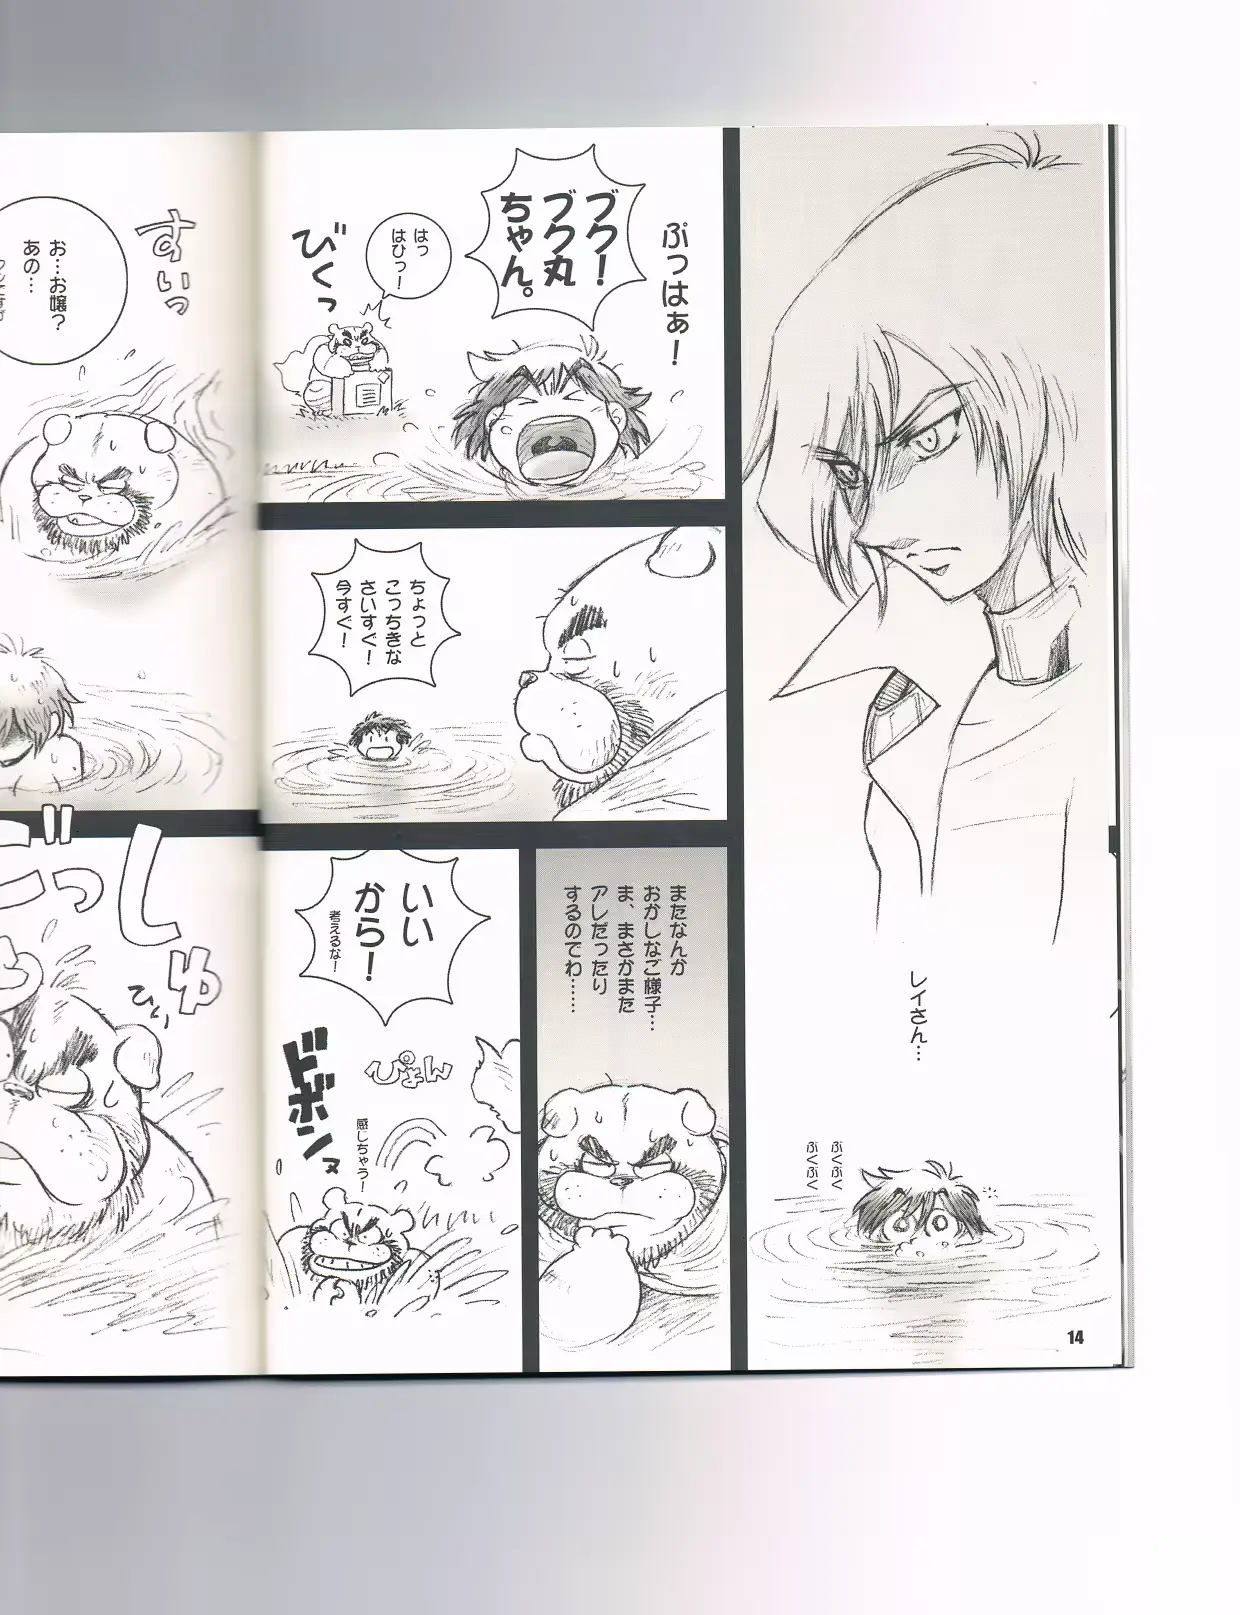 レイさん…
ぶくぶく
ぶくぶく
14
ぷっはぁ！
ブク！
ブク丸
ちゃん。
はっ
はひっ！
びくっ
ちょっと
こっちきな
さいすぐ！
今すぐ！
またなんか
おかしなご様子…
ま、まさかまた
アレだったり
するのでわ……
いい
から！
考えるな！
ぴょん
ドボンヌ
感じちゃう！
すいっ
お…お嬢？
あの…